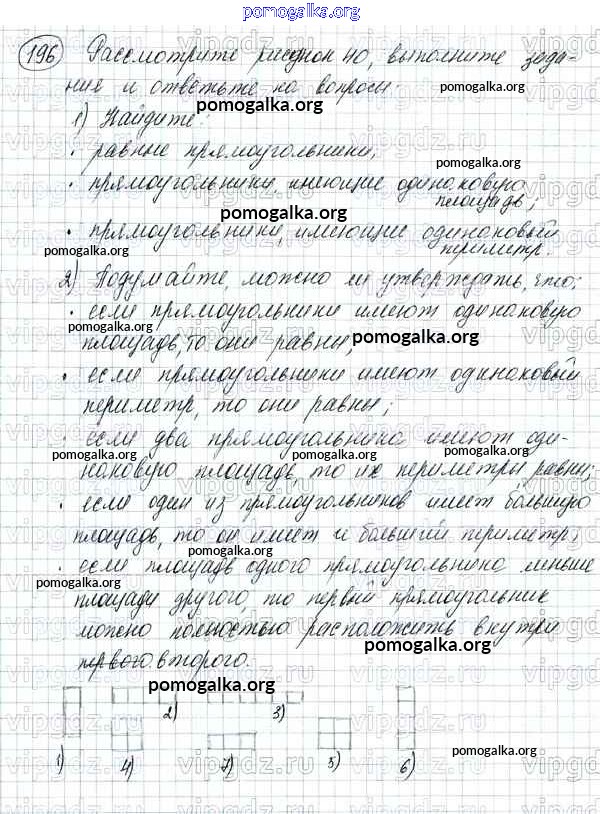 pomogalka.org
196 Рассмотрите рисунок 40, выполните зада-
ния и ответьте на вопросы.
pomogalka.org
1) Найдите:
· равные прямоугольники;
pomogalka.org
· прямоугольники, имеющие одинаковую
площадь;
pomogalka.org
· прямоугольники, имеющие одинаковый
периметр.
pomogalka.org
2) Подумайте, можно ли утверждать, что:
· если прямоугольники имеют одинаковую
pomogalka.org
площадь, то они равны;
pomogalka.org
· если прямоугольники имеют одинаковый
периметр, то они равны;
pomogalka.org
· если два прямоугольника имеют оди-
pomogalka.org
наковую площадь, то их периметры равны;
· если один из прямоугольников имеет большую
площадь, то он имеет и больший периметр;
pomogalka.org
· если площадь одного прямоугольника меньше
pomogalka.org
площади другого, то первый прямоугольник
можно полностью расположить внутри
первого второго.
pomogalka.org
2) 3)
1) 4) 7) 5) 6)
pomogalka.org
vipgdz.ru